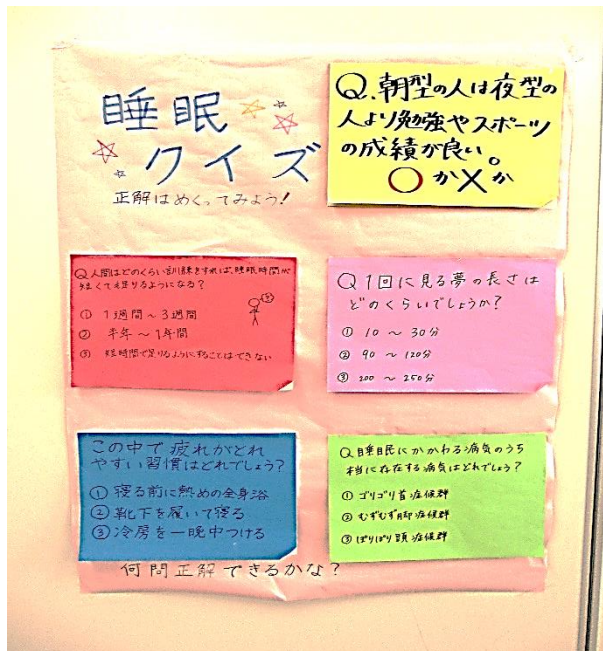 睡眠
クイズ
正解はめくってみよう!
Q.朝型の人は夜型の
人より勉強やスポーツ
の成績が良い。
○か×か
Q人間はどのくらい訓練をすれば、睡眠時間が
短くても足りるようになる?
① 1週間~3週間
② 半年~1年間
③ 短時間で足りるようにすることはできない
Q1回に見る夢の長さは
どのくらいでしょうか?
① 10 ~ 30分
② 90 ~ 120分
③ 200 ~ 250分
この中で疲れがとれ
やすい習慣はどれでしょう?
① 寝る前に熱めの全身浴
② 靴下を履いて寝る
③ 冷房を一晩中つける
Q.睡眠にかかわる病気のうち
本当に存在する病気はどれでしょう?
① ゴリゴリ首症候群
② むずむず脚症候群
③ ぽりぽり頭症候群
何問正解できるかな?